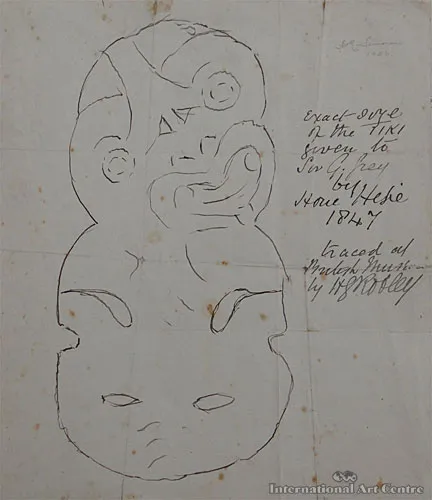 exact size
of the TIKI
given to
Sir G. Grey
by
Hone Heke
1847
traced at
British Museum
by HG Robley
International Art Centre